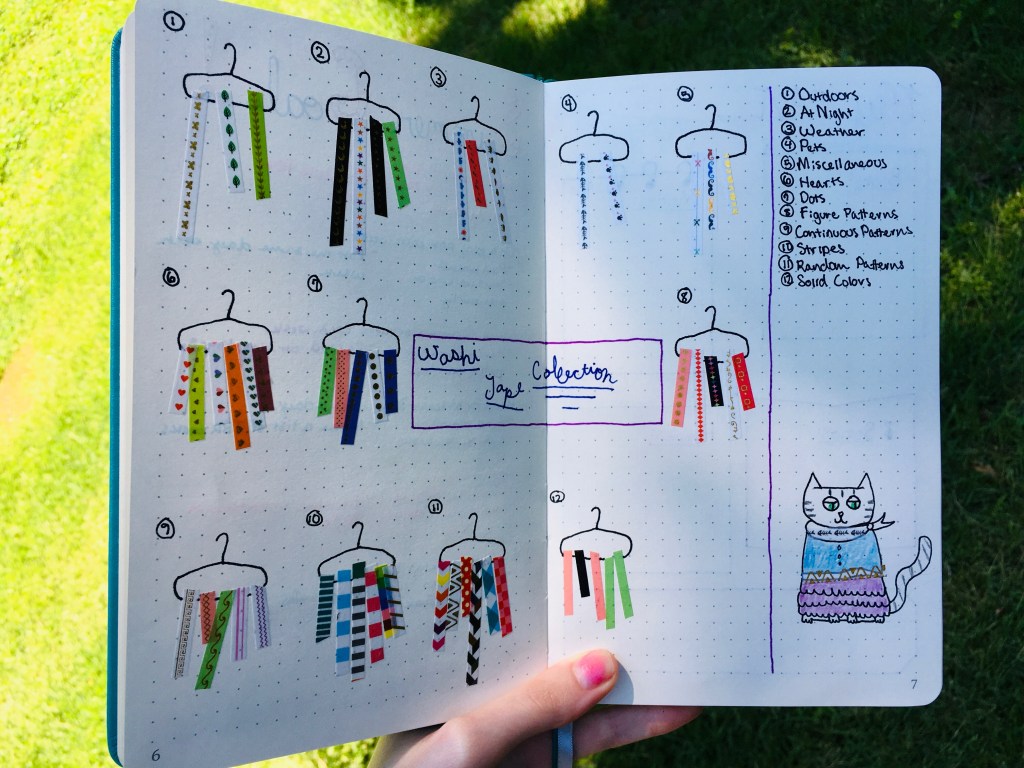 ①
②
③
④
⑤
⑥
⑦
Washi
Tape Collection
⑧
⑨
⑩
⑪
⑫
6
① Outdoors
② At Night
③ Weather
④ Pets
⑤ Miscellaneous
⑥ Hearts
⑦ Dots
⑧ Figure Patterns
⑨ Continuous Patterns
⑩ Stripes
⑪ Random Patterns
⑫ Solid Colors
7